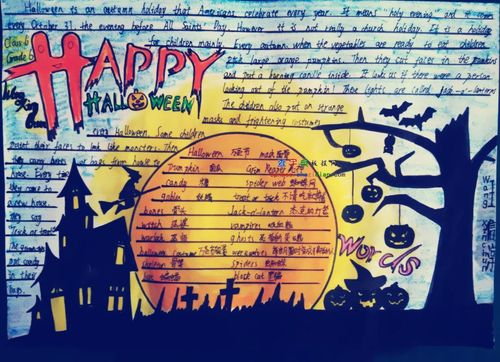 Halloween is an autumn holiday that Americans celebrate every year. It means "holy evening" and it comes
every October 31, the evening before All Saints' Day. However, it is not really a church holiday. It is a holiday
for children mainly. Every autumn, when the vegetables are ready to eat, children
pick large orange pumpkins. Then they cut faces in the pumpkins
and put a burning candle inside. It looks as if there were a person
looking out of the pumpkin! These lights are called jack-o'-lanterns
The children also put on strange
masks and frightening costumes
every Halloween. Some children
paint their faces to look like monsters. Then
they carry boxes or bags from house to
house. Every time
they come to
a new house,
they say
Trick or treat
put candy
in their
bag.
Class 6
Grade 6
HAPPY
HALLOWEEN
Halloween 万圣节
mask 面具
Pumpkin 南瓜
Grim Reaper 死神
candy 糖
spider web 蜘蛛网
goblin
treat or trick 不请吃就捣蛋
bones 骨头
Jack-o'-lantern 杰克的灯笼
witch 巫婆
vampires 吸血鬼
ghosts
halloween costume
werewolves
skeleton
spiders 蜘蛛
black cat 黑猫
Words
Wang